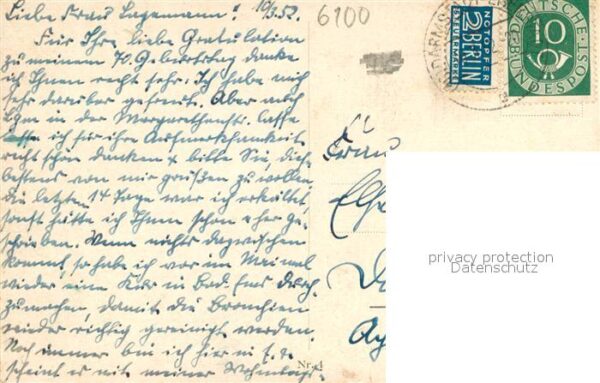 Liebe Frau Lagemann! 10/3.52.
Für Ihre liebe Gratulation
zu meinem 70. Geburtstag danke
ich Ihnen recht sehr. Ich habe mich
sehr darüber gefreut. Aber auch
in der Margarethenstr. Caffe
ich für ihre Aufmerksamkeit
recht schön danken + bitte Sie, die
bestens von mir grüßen zu wollen
die letzten 14 Tage war ich erkältet,
sonst hätte ich Ihnen schon eher ge-
schrieben. Wenn nichts dazwischen
kommt so habe ich vor im Mai mal
wieder eine Kur in Bad. Ems durch
zumachen, damit die Bronchien
wieder richtig gereinigt werden.
Noch immer bin ich hier in F. +
scheint es mit meiner Wohnungs-
6100
NOTOPFER
2 BERLIN
STEUERMARKE
DEUTSCHE
BUNDESPOST
10
Frau
Else
Nr. 4
privacy protection
Datenschutz